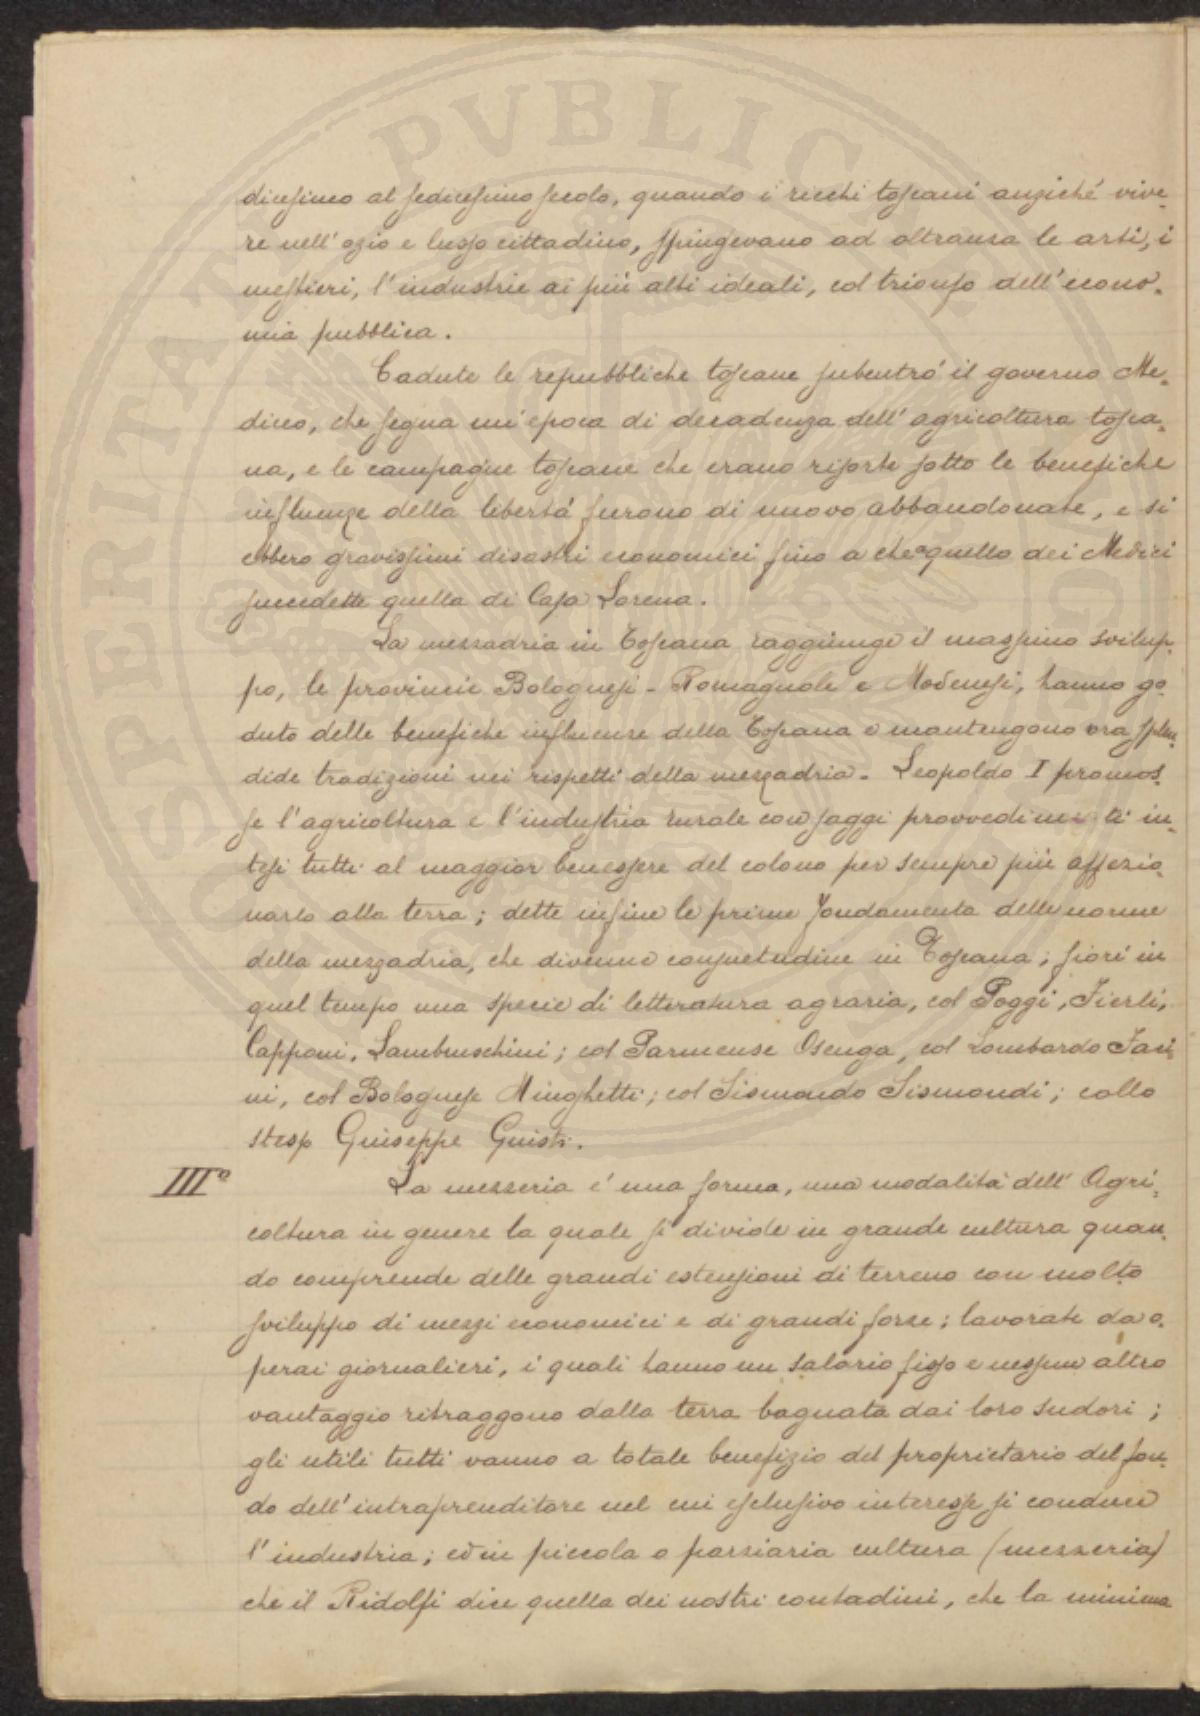 dicesimo al sedicesimo secolo, quando i ricchi toscani anziché vive-
re nell'ozio e lusso cittadino, spingevano ad oltranza le arti, i
mestieri, l'industrie ai più alti ideali, col trionfo dell'econo-
mia pubblica.
Cadute le repubbliche toscane subentró il governo Me-
diceo, che segna un'epoca di decadenza dell'agricoltura tosca-
na, e le campagne toscane che erano risorte sotto le benefiche
influenze della libertá furono di nuovo abbandonate, e si
ebbero gravissimi disastri economici fino a che a quello dei Medici
succedette quella di Casa Lorena.
La mezzadria in Toscana raggiunge il massimo svilup-
po, le provincie Bolognesi - Romagnole e Modenesi, hanno go-
duto delle benefiche influenze della Toscana e mantengono ora splen-
dide tradizioni nei rispetti della mezzadria. Leopoldo I promos-
se l'agricoltura e l'industria rurale con saggi provvedimenti in-
tesi tutti al maggior benessere del colono per sempre più affezio-
narlo alla terra; dette infine le prime fondamenta delle norme
della mezzadria, che divenne consuetudine in Toscana; fiorí in
quel tempo una specie di letteratura agraria, col Poggi, Fierli,
Capponi, Lambruschini; col Parmense Osenga, col Lombardo Jaci-
ni, col Bolognese Minghetti; col Sismondo Sismondi; collo
stesso Giuseppe Giusti.
IIIº
La mezzeria é una forma, una modalitá dell'Agri-
coltura in genere la quale si divide in grande cultura quan-
do comprende delle grandi estensioni di terreno con molto
sviluppo di mezzi economici e di grandi forze; lavorate da o-
perai giornalieri, i quali hanno un salario fisso e nessun altro
vantaggio ritraggono dalla terra bagnata dai loro sudori;
gli utili tutti vanno a totale benefizio del proprietario del fon-
do dell'intraprenditore nel cui esclusivo interesse si conduce
l'industria; ed in piccola o parziaria cultura (mezzeria)
che il Ridolfi dice quella dei nostri contadini, che la minima
PVBLICAE